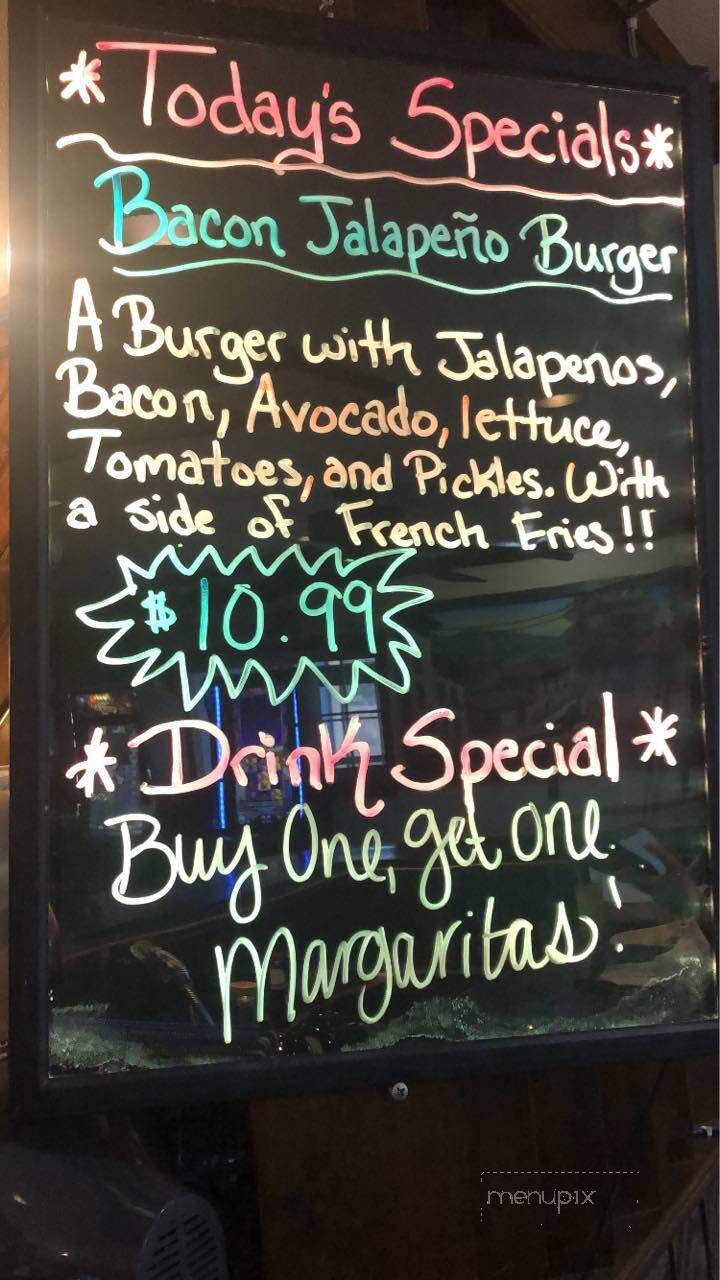 *Today's Specials*
Bacon Jalapeño Burger
A Burger with Jalapenos,
Bacon, Avocado, lettuce,
Tomatoes, and Pickles. With
a side of French Fries!!
$10.99
*Drink Special*
Buy One, get one
Margaritas!
menupix